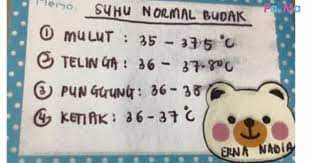 Memo.
PaMa
SUHU NORMAL BUDAK
① MULUT : 35 - 37.5°C
② TELINGA : 36 - 37.8°C
③ PUNGGUNG : 36 - 38
④ KETIAK : 36 - 37°C
ERNA NADIA